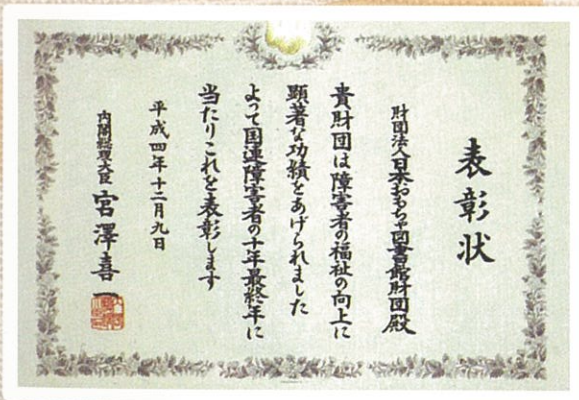 表彰状
財団法人日本おもちゃ図書館財団殿
貴財団は障害者の福祉の向上に
顕著な功績をあげられました
よって国連障害者の十年最終年に
当たりこれを表彰します
平成四年十二月九日
内閣総理大臣 宮澤喜一